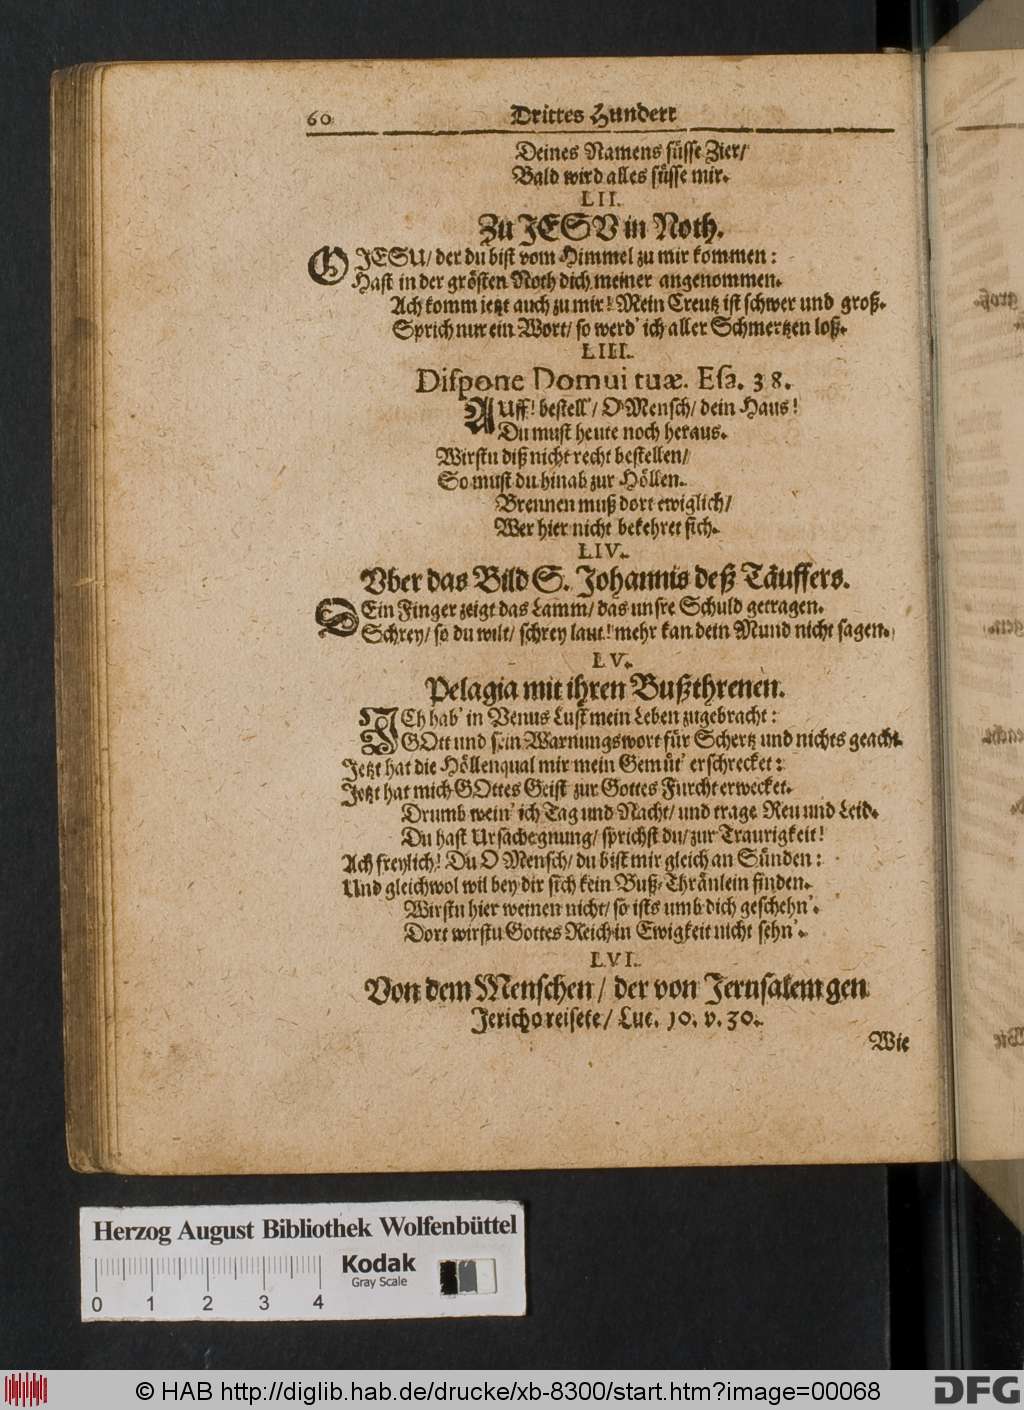 60 Drittes Hundert
Deines Namens süsse Zier/
Bald wird alles süsse mir.
LII.
Zu JESV in Noth.
O JESU/ der du bist vom Himmel zu mir kommen:
Hast in der grösten Noth dich meiner angenommen.
Ach komm ietzt auch zu mir! Mein Creutz ist schwer und groß.
Sprich nur ein Wort/ so werd' ich aller Schmertzen loß.
LIII.
Dispone Domui tuæ. Esa. 38.
AUff! bestell'/ O Mensch/ dein Haus!
Du must heute noch heraus.
Wirstu diß nicht recht bestellen/
So must du hinab zur Höllen.
Brennen muß dort ewiglich/
Wer hier nicht bekehret sich.
LIV.
Vber das Bild S. Johannis deß Täuffers.
DEin Finger zeigt das Lamm/ das unsre Schuld getragen.
Schrey/ so du wilt/ schrey laut! mehr kan dein Mund nicht sagen.
LV.
Pelagia mit ihren Bußthrenen.
ICh hab' in Venus Lust mein Leben zugebracht:
GOtt und sein Warnungswort für Schertz und nichts geacht.
Jetzt hat die Höllenqual mir mein Gemüt' erschrecket:
Jetzt hat mich GOttes Geist zur Gottes Furcht erwecket.
Drumb wein' ich Tag und Nacht/ und trage Reu und Leid.
Du hast Ursach gnung/ sprichst du/ zur Traurigkeit!
Ach freylich! Du O Mensch/ du bist mir gleich an Sünden:
Und gleichwol wil bey dir sich kein Buß-Thränlein finden.
Wirstu hier weinen nicht/ so ists umb dich geschehn'.
Dort wirstu Gottes Reich in Ewigkeit nicht sehn'.
LVI.
Von dem Menschen/ der von Jerusalem gen
Jericho reisete/ Luc. 10. v. 30.
Wie
Herzog August Bibliothek Wolfenbüttel
Kodak
Gray Scale
0 1 2 3 4
© HAB http://diglib.hab.de/drucke/xb-8300/start.htm?image=00068
DFG